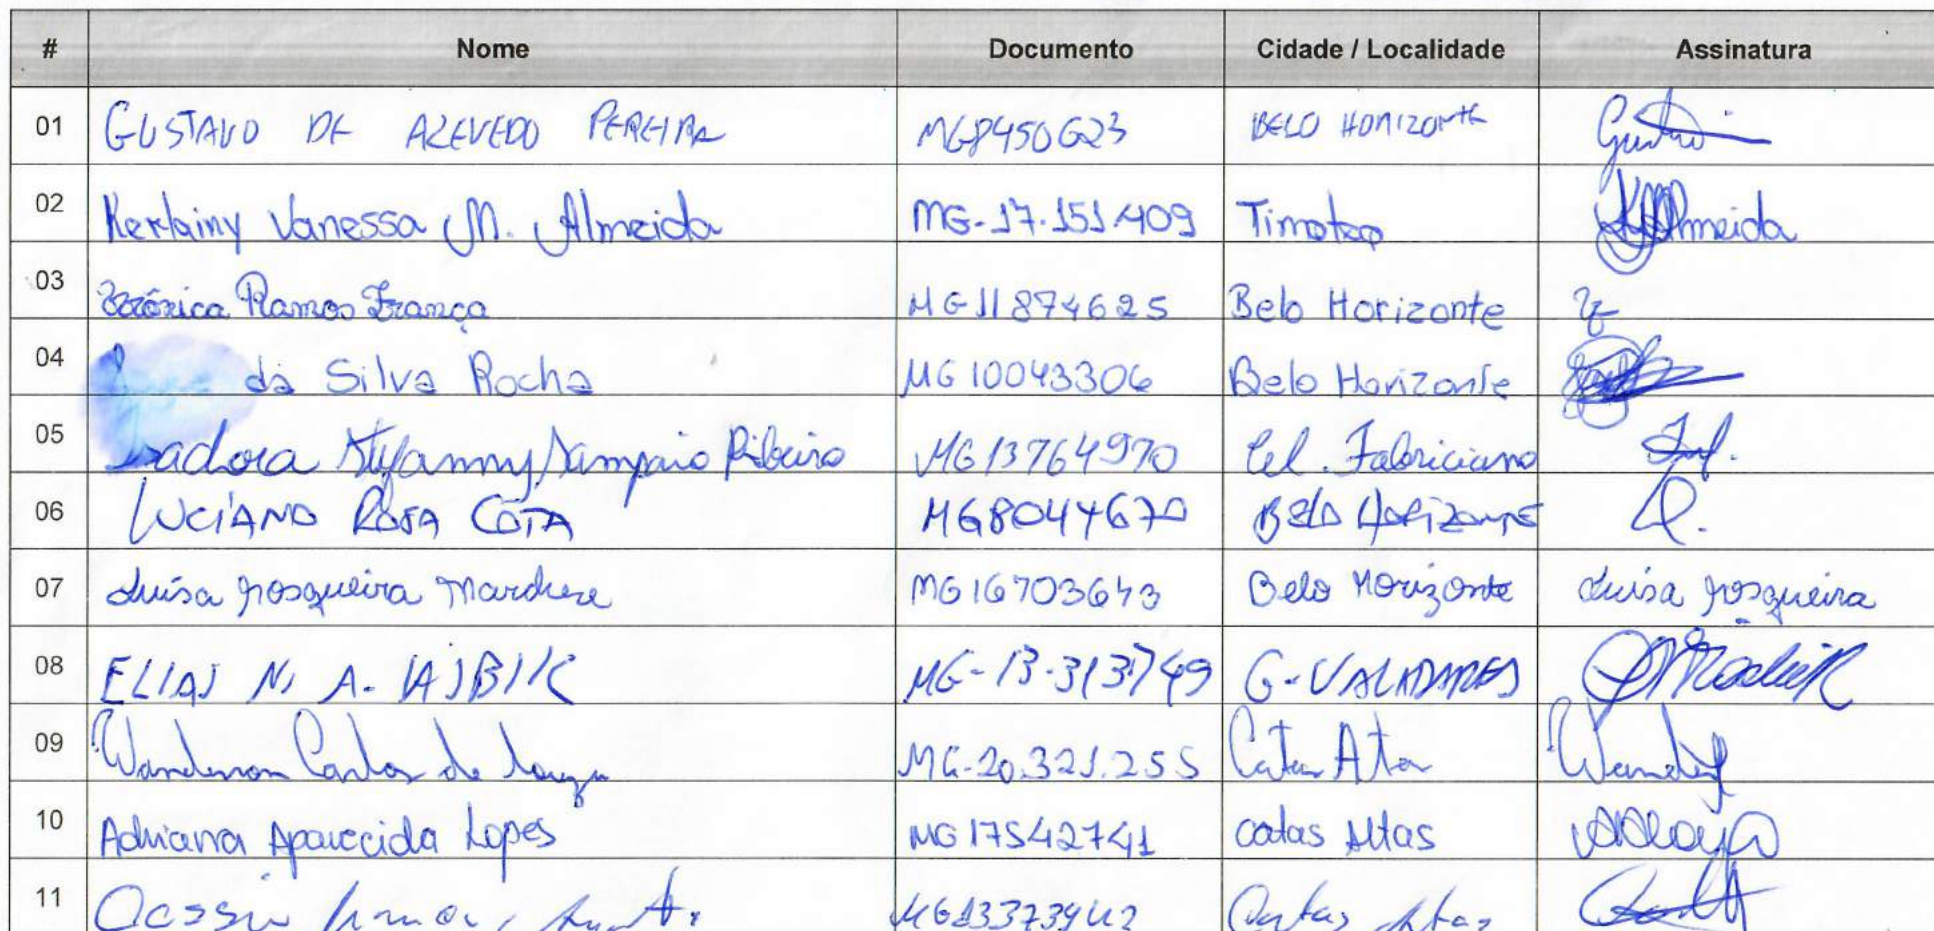 # Nome Documento Cidade / Localidade Assinatura
01 GUSTAVO DE AZEVEDO PEREIRA MG8450623 BELO HORIZONTE
02 Kerlainy Vanessa M. Almeida MG-17.151.409 Timoteo Almeida
03 Ramos França MG11874625 Belo Horizonte
04 da Silva Rocha MG10043306 Belo Horizonte
05 Izadora Styfanny Sampaio Ribeiro MG13764970 Cel. Fabriciano
06 LUCIANO ROSA COTA MG8044670 BELO HORIZONTE
07 Luísa Nosqueira Marduze MG16703643 Belo Horizonte Luísa Nosqueira
08 ELIAS N. A. MG-13-313749 G-VALADARES
09 Wanderson Carlos de Souza MG-20.321.255 Catas Altas
10 Adriana Aparecida Lopes MG17542741 Catas Altas
11 Catas Altas